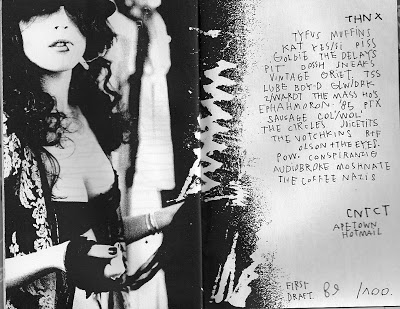 THNX
TYFUS MUFFINS
KAT YES/SI PISS
GOLDIE THE DELAYS
PIT OOSH SNEAKS
VINTAGE GRIET. TSS
LUBE BOY.D GLW/DRK
Z/WARDT THE MASS HO'S
EPHAHMORON. '86 PTX
SAUSAGE COL/WOL'
THE CIRCLES JUICETITS
THE NOTCHKINS BFF
OLSON + THE EYED.
POW. CONSPIRANZIG
AUDIOBROKE MOSHNATE
THE COFFEE NAZIS
CNTCT
APETOWN
HOTMAIL
FIRST
DRAFT. 89 /100.